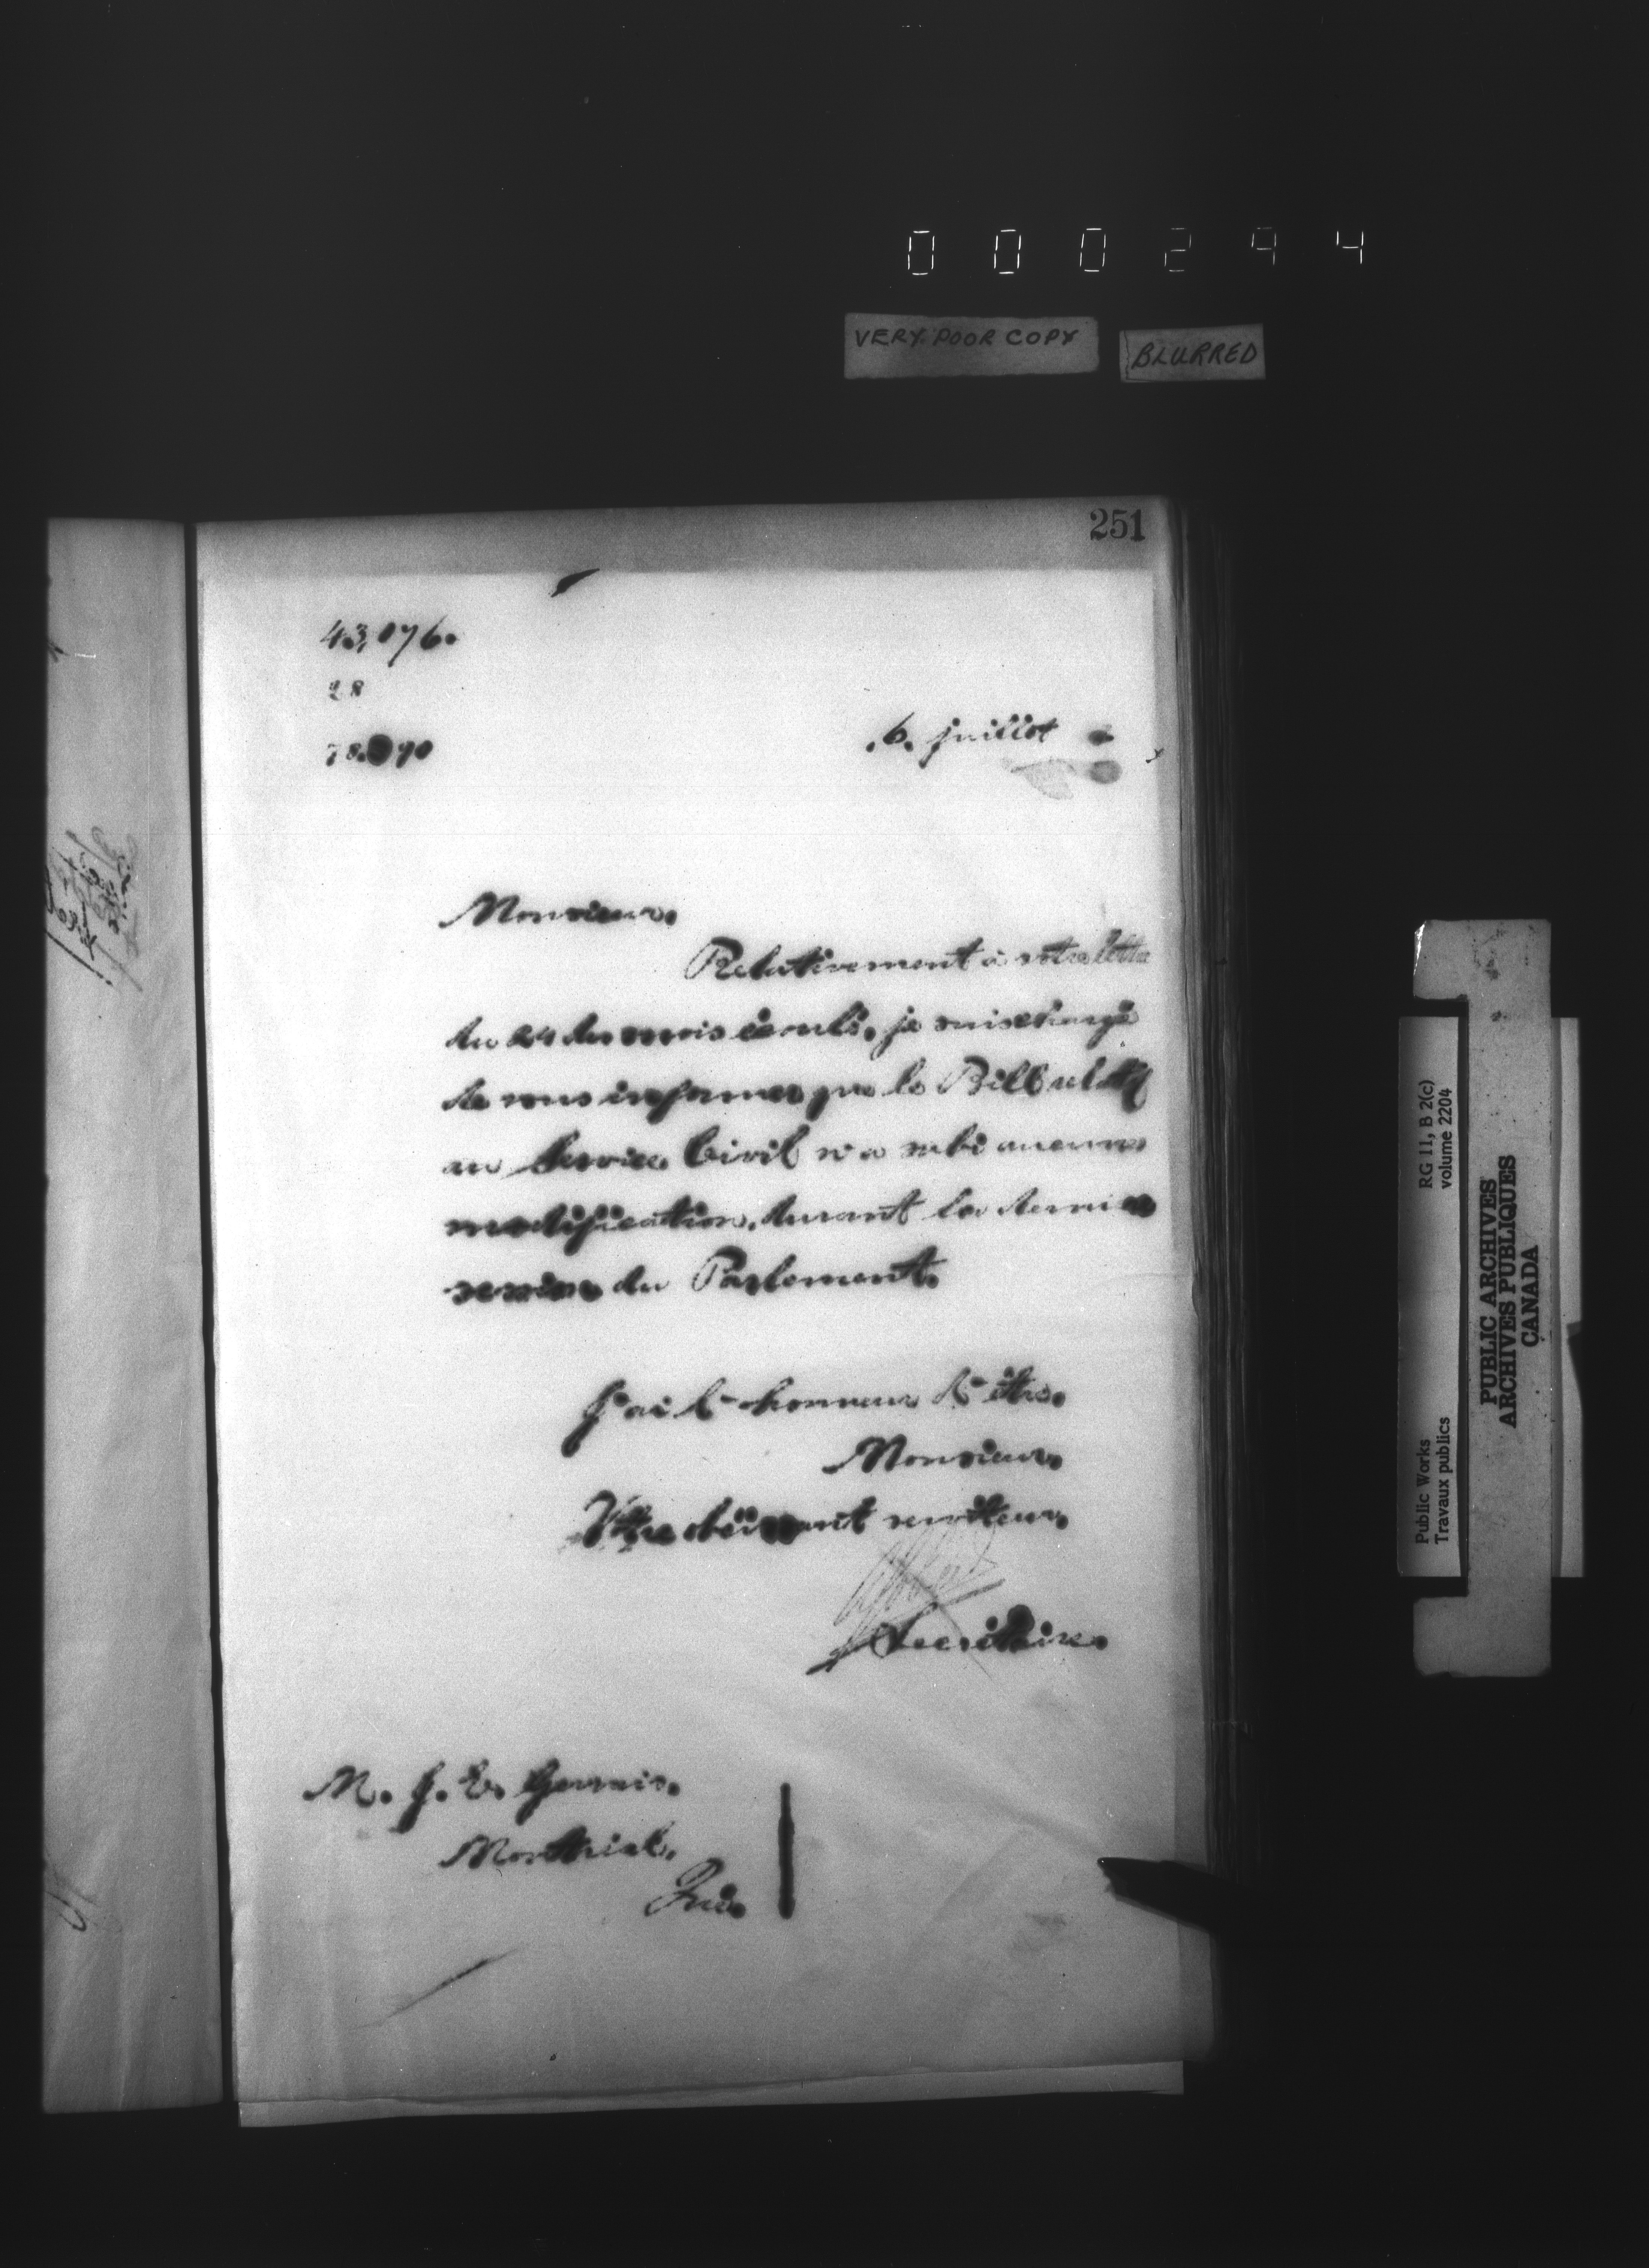 000294
VERY POOR COPY
BLURRED
251
43,076.
28
6. juillet
Monsieur,
Relativement à votre lettre
du 24 du mois écoulé, je suis chargé
de vous informer que le Bill relatif
au Service Civil n'a subi aucune
modification, durant la dernière
session du Parlement.
J'ai l'honneur d'être,
Monsieur,
Votre obéissant serviteur,
Secrétaire.
M. J. E. Gervais,
Montréal,
Qué.
Public Works
Travaux publics
RG 11, B 2(c)
volume 2204
PUBLIC ARCHIVES
ARCHIVES PUBLIQUES
CANADA